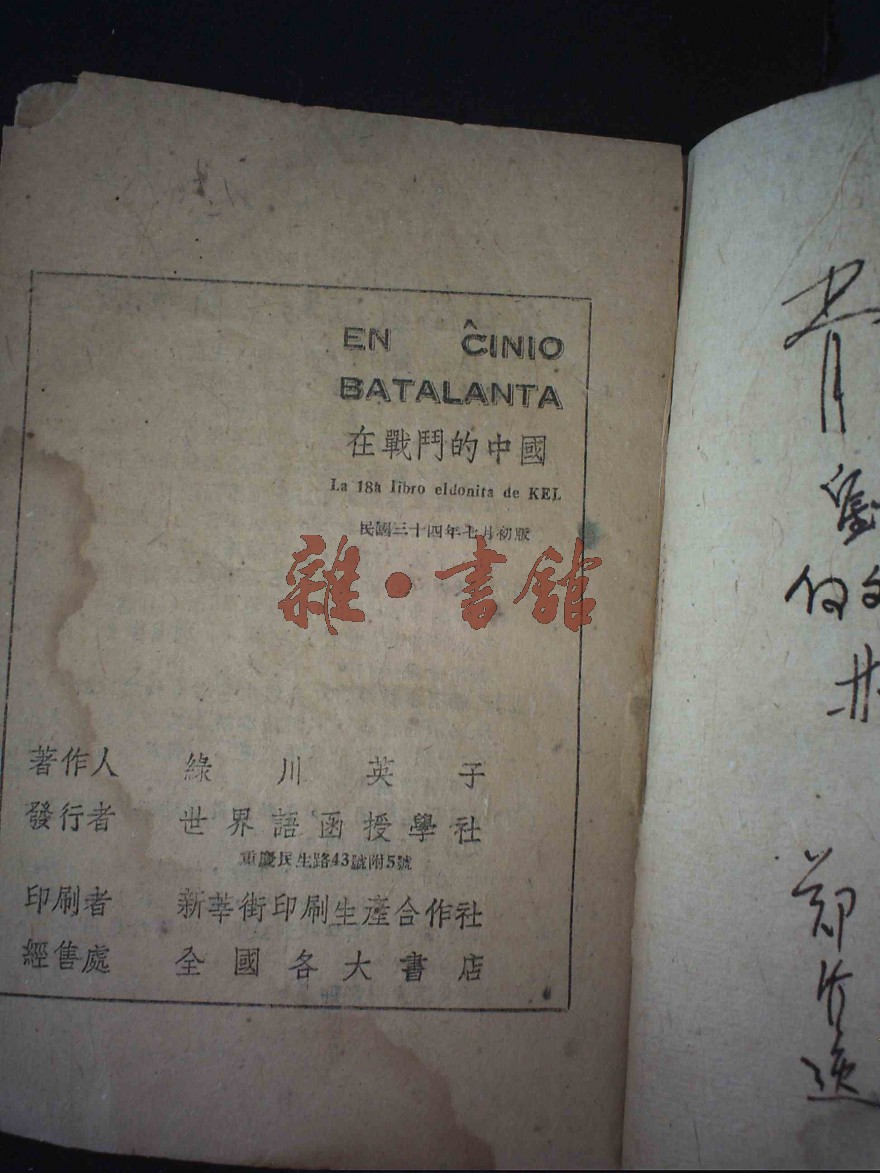 EN ĈINIO
BATALANTA
在戰鬥的中國
La 18a libro eldonita de KEL
民國三十四年七月初版
雜·書舘
著作人 綠川英子
發行者 世界語函授學社
重慶民生路43號附5號
印刷者 新華街印刷生產合作社
經售處 全國各大書店